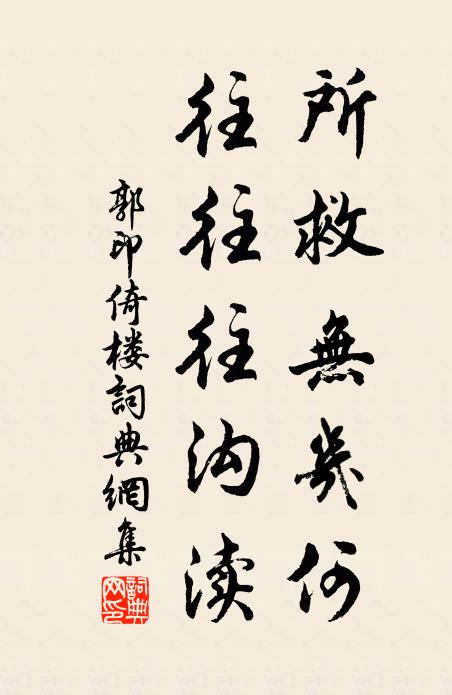 所救無幾何
往往往沟渎
郭印倚楼詞典網集
詞典网印